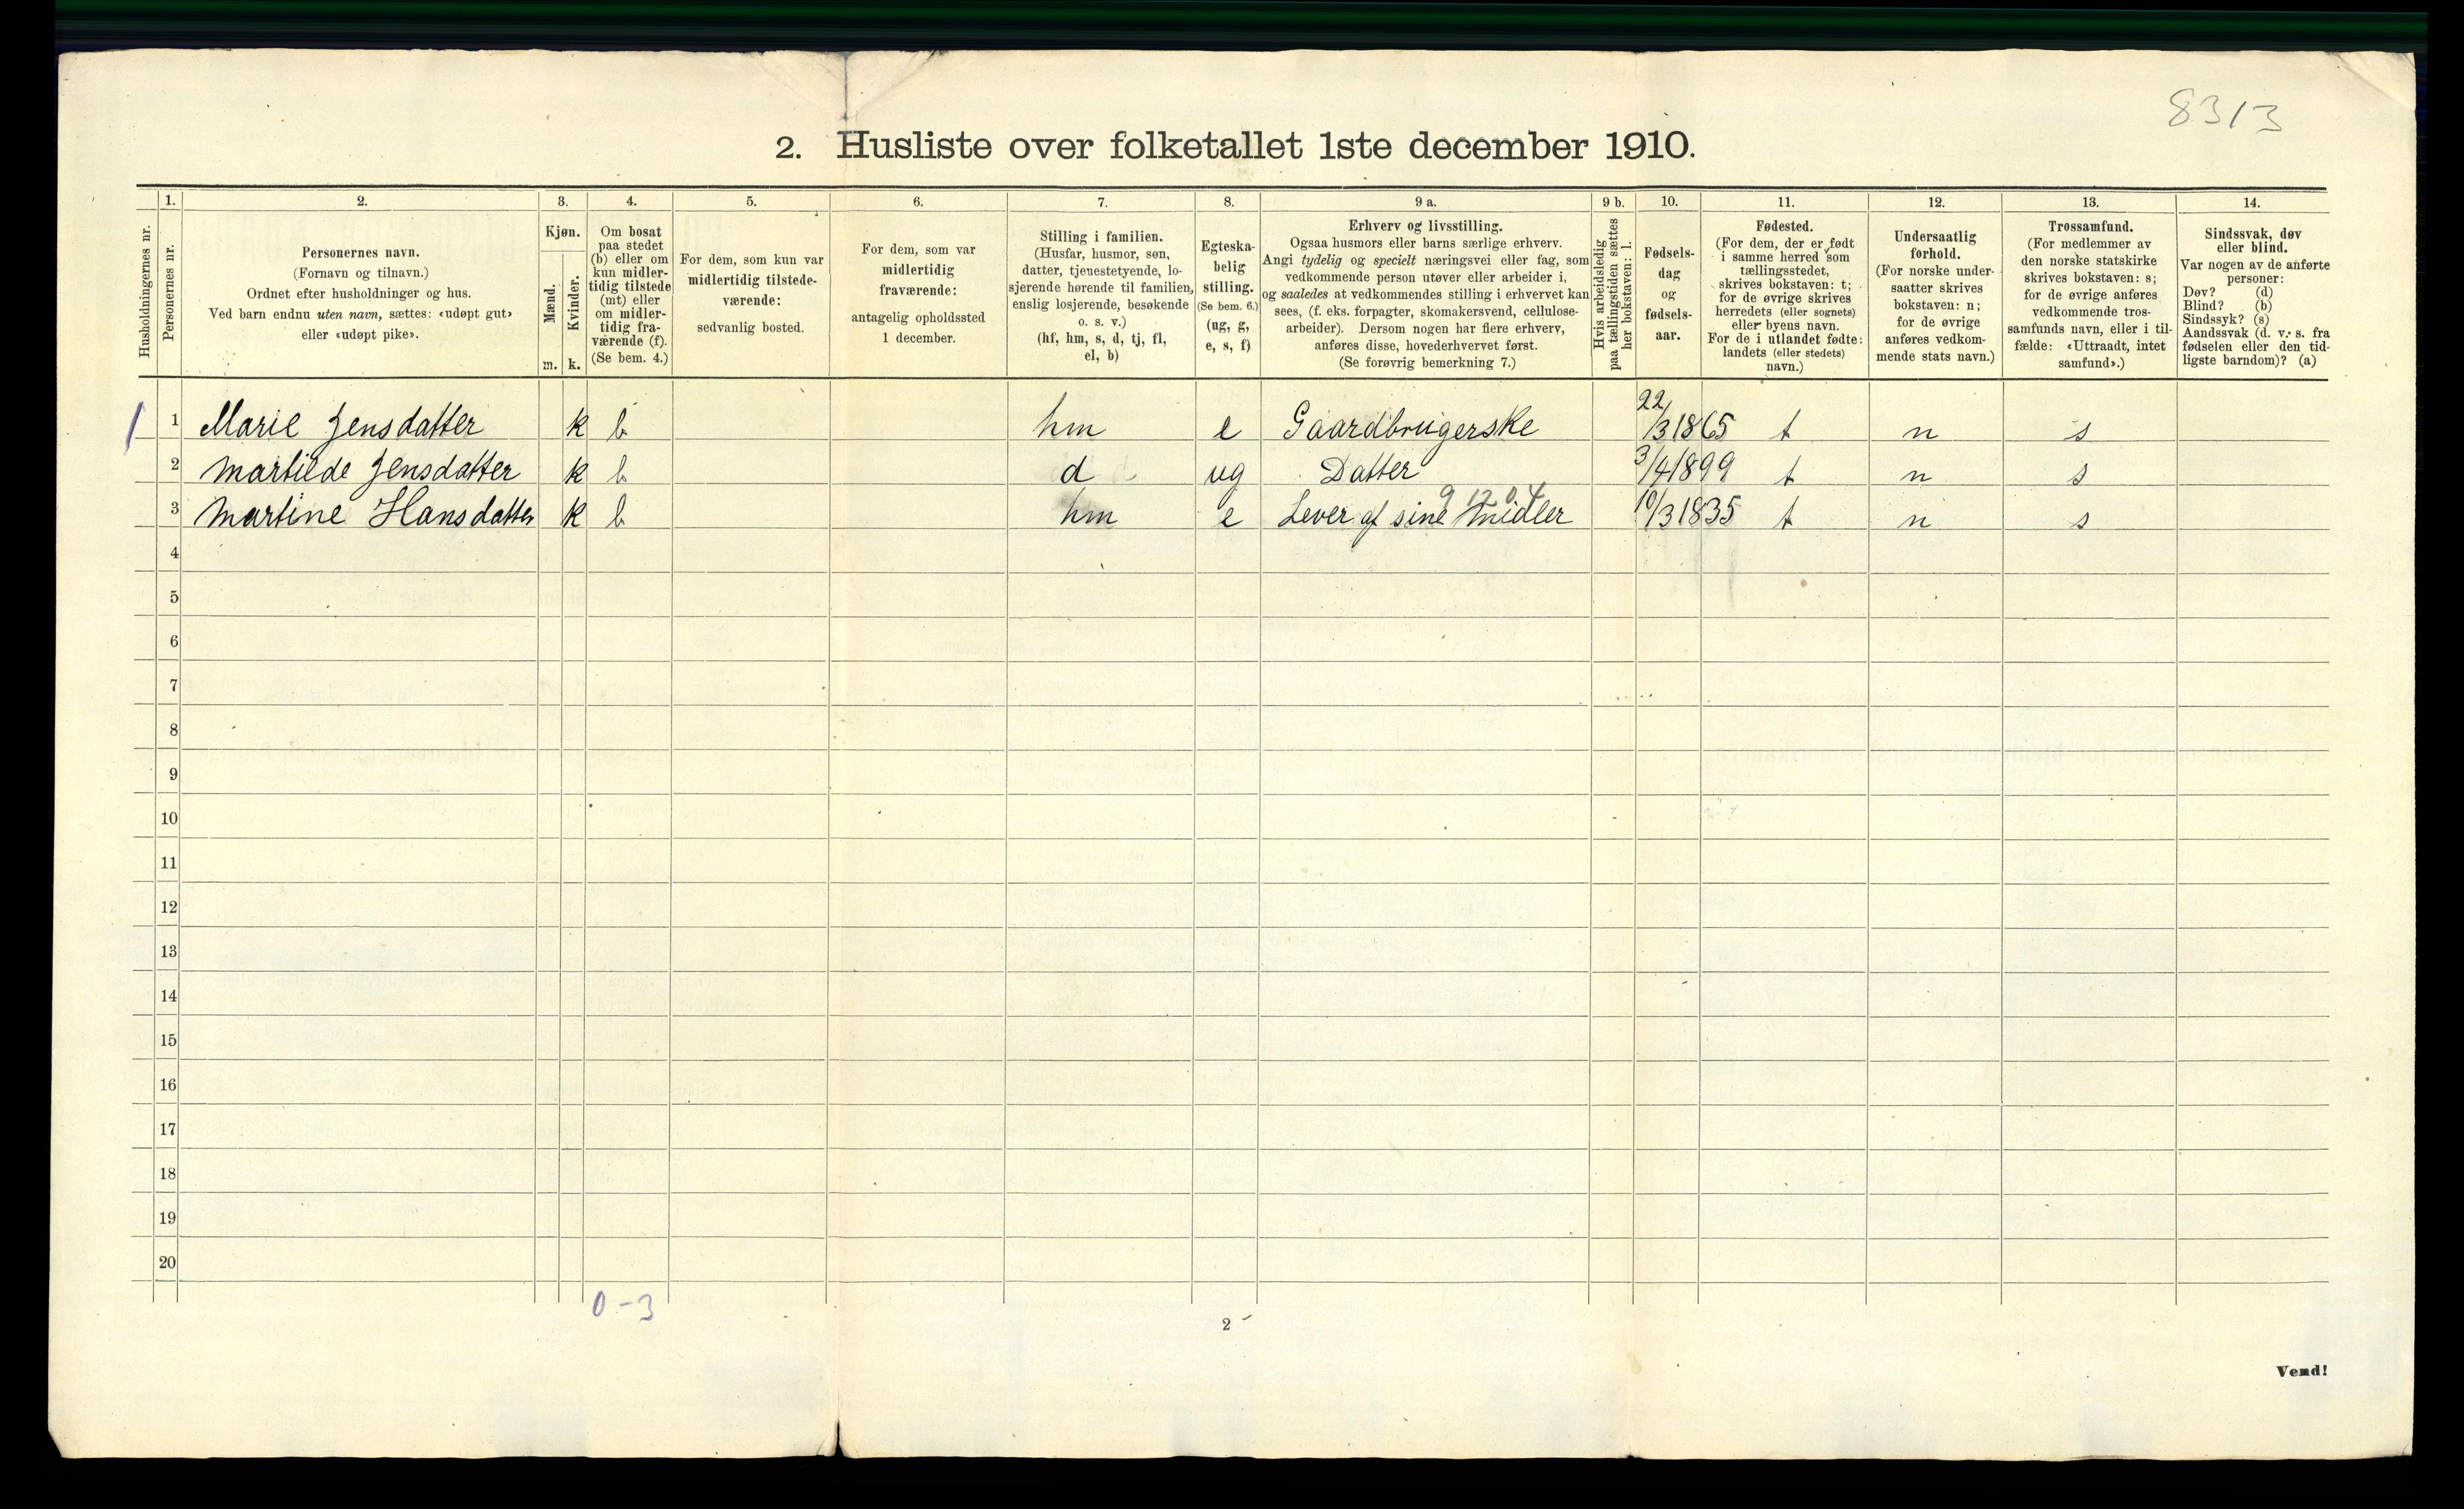 8313
2. Husliste over folketallet 1ste december 1910.
Husholdningernes nr.
1.
Personernes nr.
2.
Personernes navn.
(Fornavn og tilnavn.)
Ordnet efter husholdninger og hus.
Ved barn endnu uten navn, sættes: «udøpt gut»
eller «udøpt pike».
3.
Kjøn.
Mænd.
Kvinder.
m. k.
4.
Om bosat
paa stedet
(b) eller om
kun midler-
tidig tilstede
(mt) eller
om midler-
tidig fra-
værende (f).
(Se bem. 4.)
5.
For dem, som kun var
midlertidig tilstede-
værende:
sedvanlig bosted.
6.
For dem, som var
midlertidig
fraværende:
antagelig opholdssted
1 december.
7.
Stilling i familien.
(Husfar, husmor, søn,
datter, tjenestetyende, lo-
sjerende hørende til familien,
enslig losjerende, besøkende
o. s. v.)
(hf, hm, s, d, tj, fl,
el, b)
8.
Egteska-
belig
stilling.
(Se bem. 6.)
(ug, g,
e, s, f)
9 a.
Erhverv og livsstilling.
Ogsaa husmors eller barns særlige erhverv.
Angi tydelig og specielt næringsvei eller fag, som
vedkommende person utøver eller arbeider i,
og saaledes at vedkommendes stilling i erhvervet kan
sees, (f. eks. forpagter, skomakersvend, cellulose-
arbeider). Dersom nogen har flere erhverv,
anføres disse, hovederhvervet først.
(Se forøvrig bemerkning 7.)
9 b.
Hvis arbeidsledig
paa tællingstiden sættes
her bokstaven: l.
10.
Fødsels-
dag
og
fødsels-
aar.
11.
Fødested.
(For dem, der er født
i samme herred som
tællingsstedet,
skrives bokstaven: t;
for de øvrige skrives
herredets (eller sognets)
eller byens navn.
For de i utlandet fødte:
landets (eller stedets)
navn.)
12.
Undersaatlig
forhold.
(For norske under-
saatter skrives
bokstaven: n;
for de øvrige
anføres vedkom-
mende stats navn.)
13.
Trossamfund.
(For medlemmer av
den norske statskirke
skrives bokstaven: s;
for de øvrige anføres
vedkommende tros-
samfunds navn, eller i til-
fælde: «Uttraadt, intet
samfund».)
14.
Sindssvak, døv
eller blind.
Var nogen av de anførte
personer:
Døv? (d)
Blind? (b)
Sindssyk? (s)
Aandssvak (d. v. s. fra
fødselen eller den tid-
ligste barndom)? (a)
1 1 Marie Jensdatter k b hm e Gaardbrugerske 22/3 1865 t n s
2 Martilde Jensdatter k b d ug Datter 3/4 1899 t n s
9 12 0 4
3 Martine Hansdatter k b hm e Lever af sine Midler 10/3 1835 t n s
4
5
6
7
8
9
10
11
12
13
14
15
16
17
18
19
20
0 - 3
2
Vend!